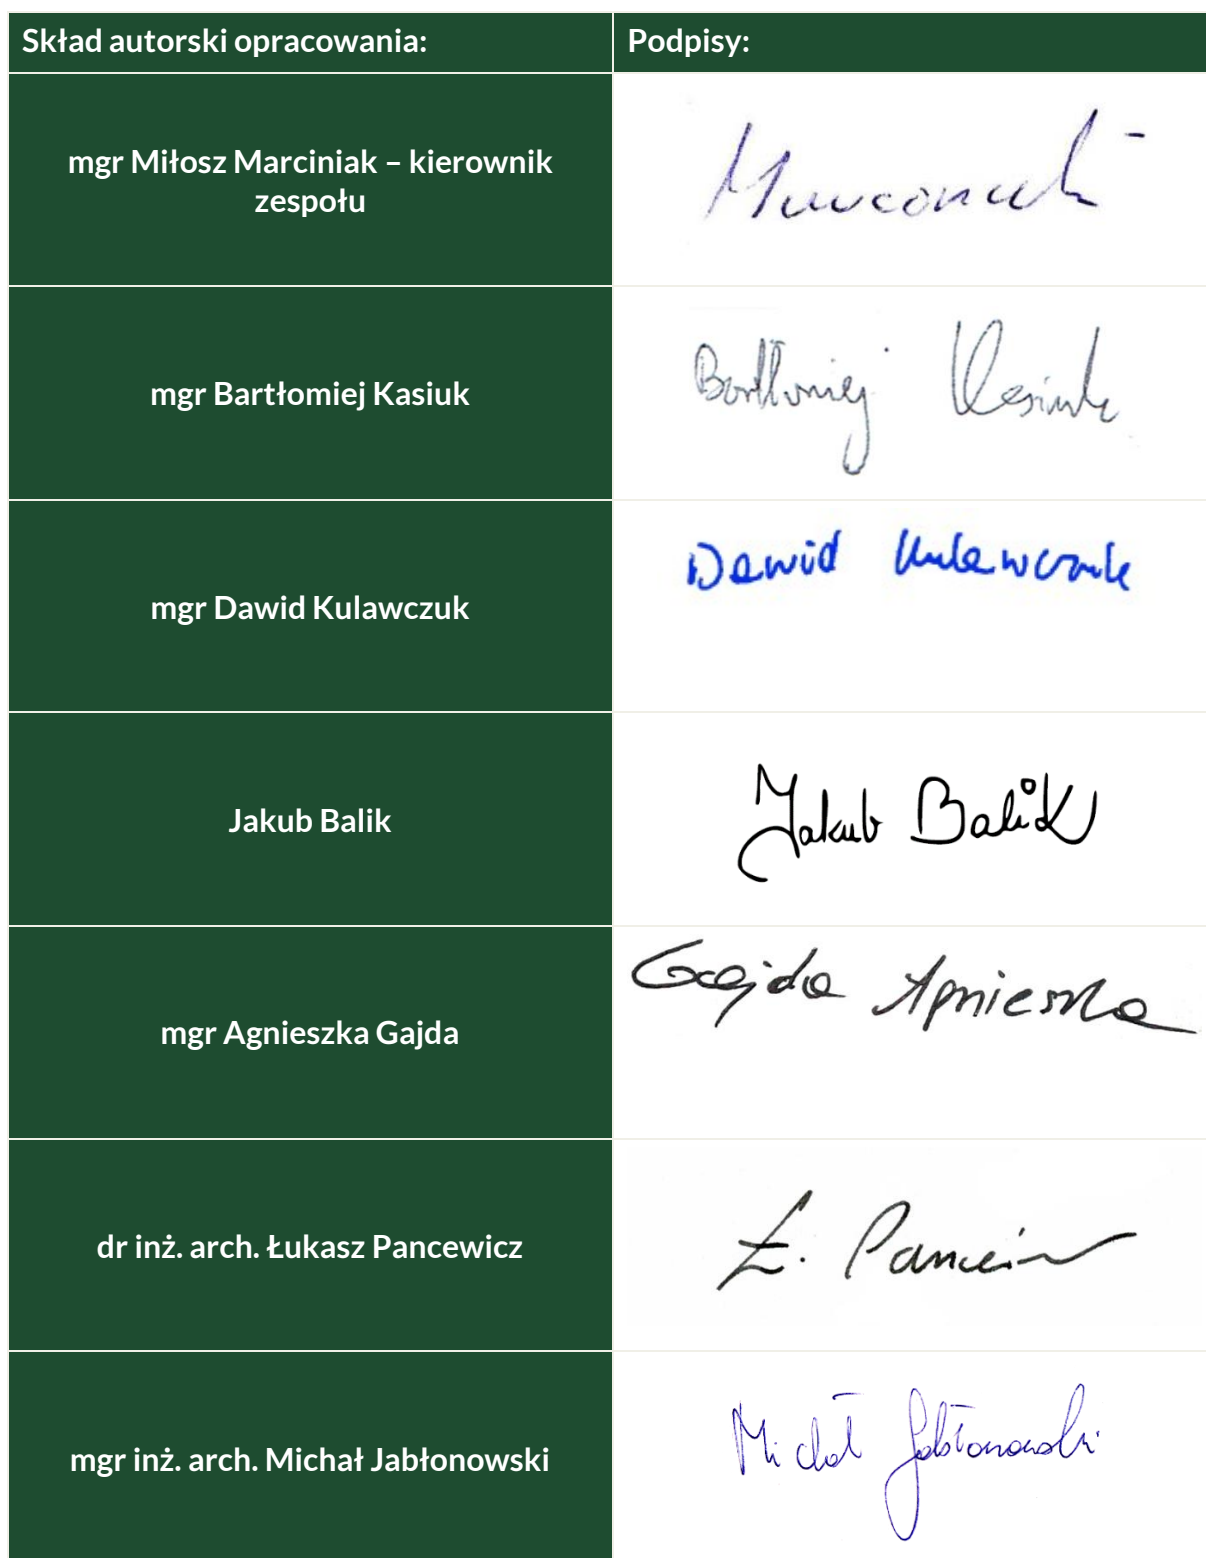 Skład autorski opracowania: Podpisy:
mgr Miłosz Marciniak – kierownik
zespołu
Marciniak
mgr Bartłomiej Kasiuk
Bartłomiej Kasiuk
mgr Dawid Kulawczuk
Dawid Kulawczuk
Jakub Balik
Jakub Balik
mgr Agnieszka Gajda
Gajda Agnieszka
dr inż. arch. Łukasz Pancewicz
Ł.
mgr inż. arch. Michał Jabłonowski
Michał Jabłonowski